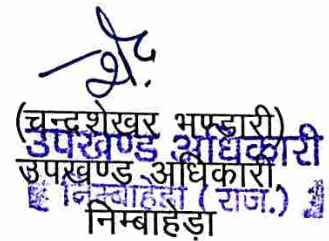 (चन्द्रशेखर भण्डारी)
उपखण्ड अधिकारी
उपखण्ड अधिकारी,
निम्बाहेडा (राज.)
निम्बाहेड़ा